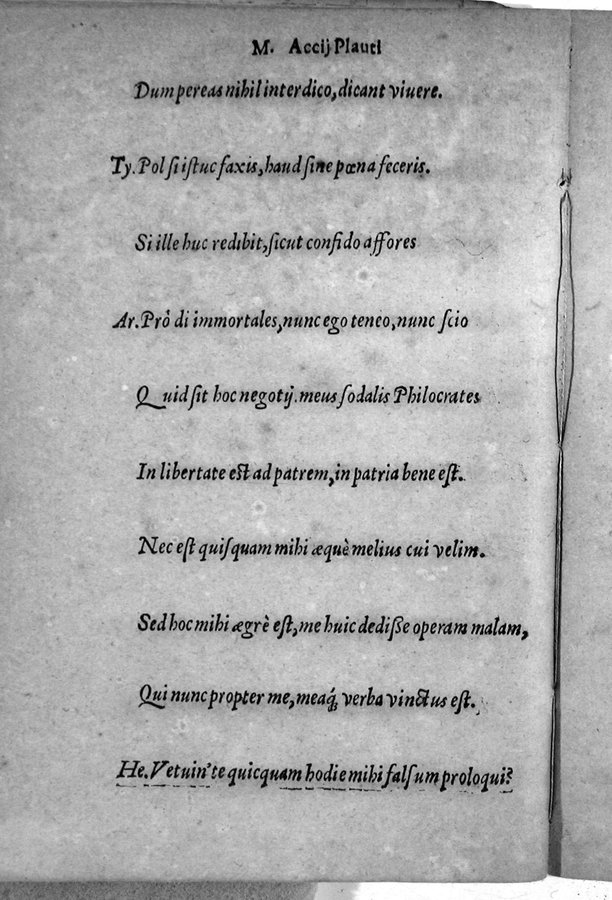 M. Accij Plauti
Dum pereas nihil interdico, dicant viuere.
Ty. Pol ſi iſtuc faxis, haud ſine pœna feceris.
Si ille huc redibit, ſicut confido affores
Ar. Prô di immortales, nunc ego teneo, nunc ſcio
Quid ſit hoc negotij. meus ſodalis Philocrates
In libertate eſt ad patrem, in patria bene eſt.
Nec eſt quiſquam mihi æquè melius cui velim.
Sed hoc mihi ægrè eſt, me huic dediſſe operam malam,
Qui nunc propter me, meaq́; verba vinctus eſt.
He. Vetuin' te quicquam hodie mihi falſum proloqui?